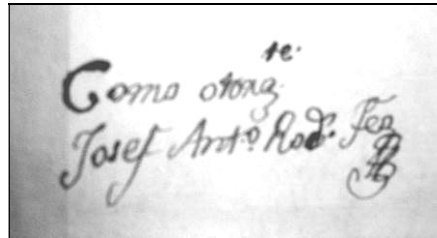 Como otorg.te
Josef Ant.o Rod. Feo